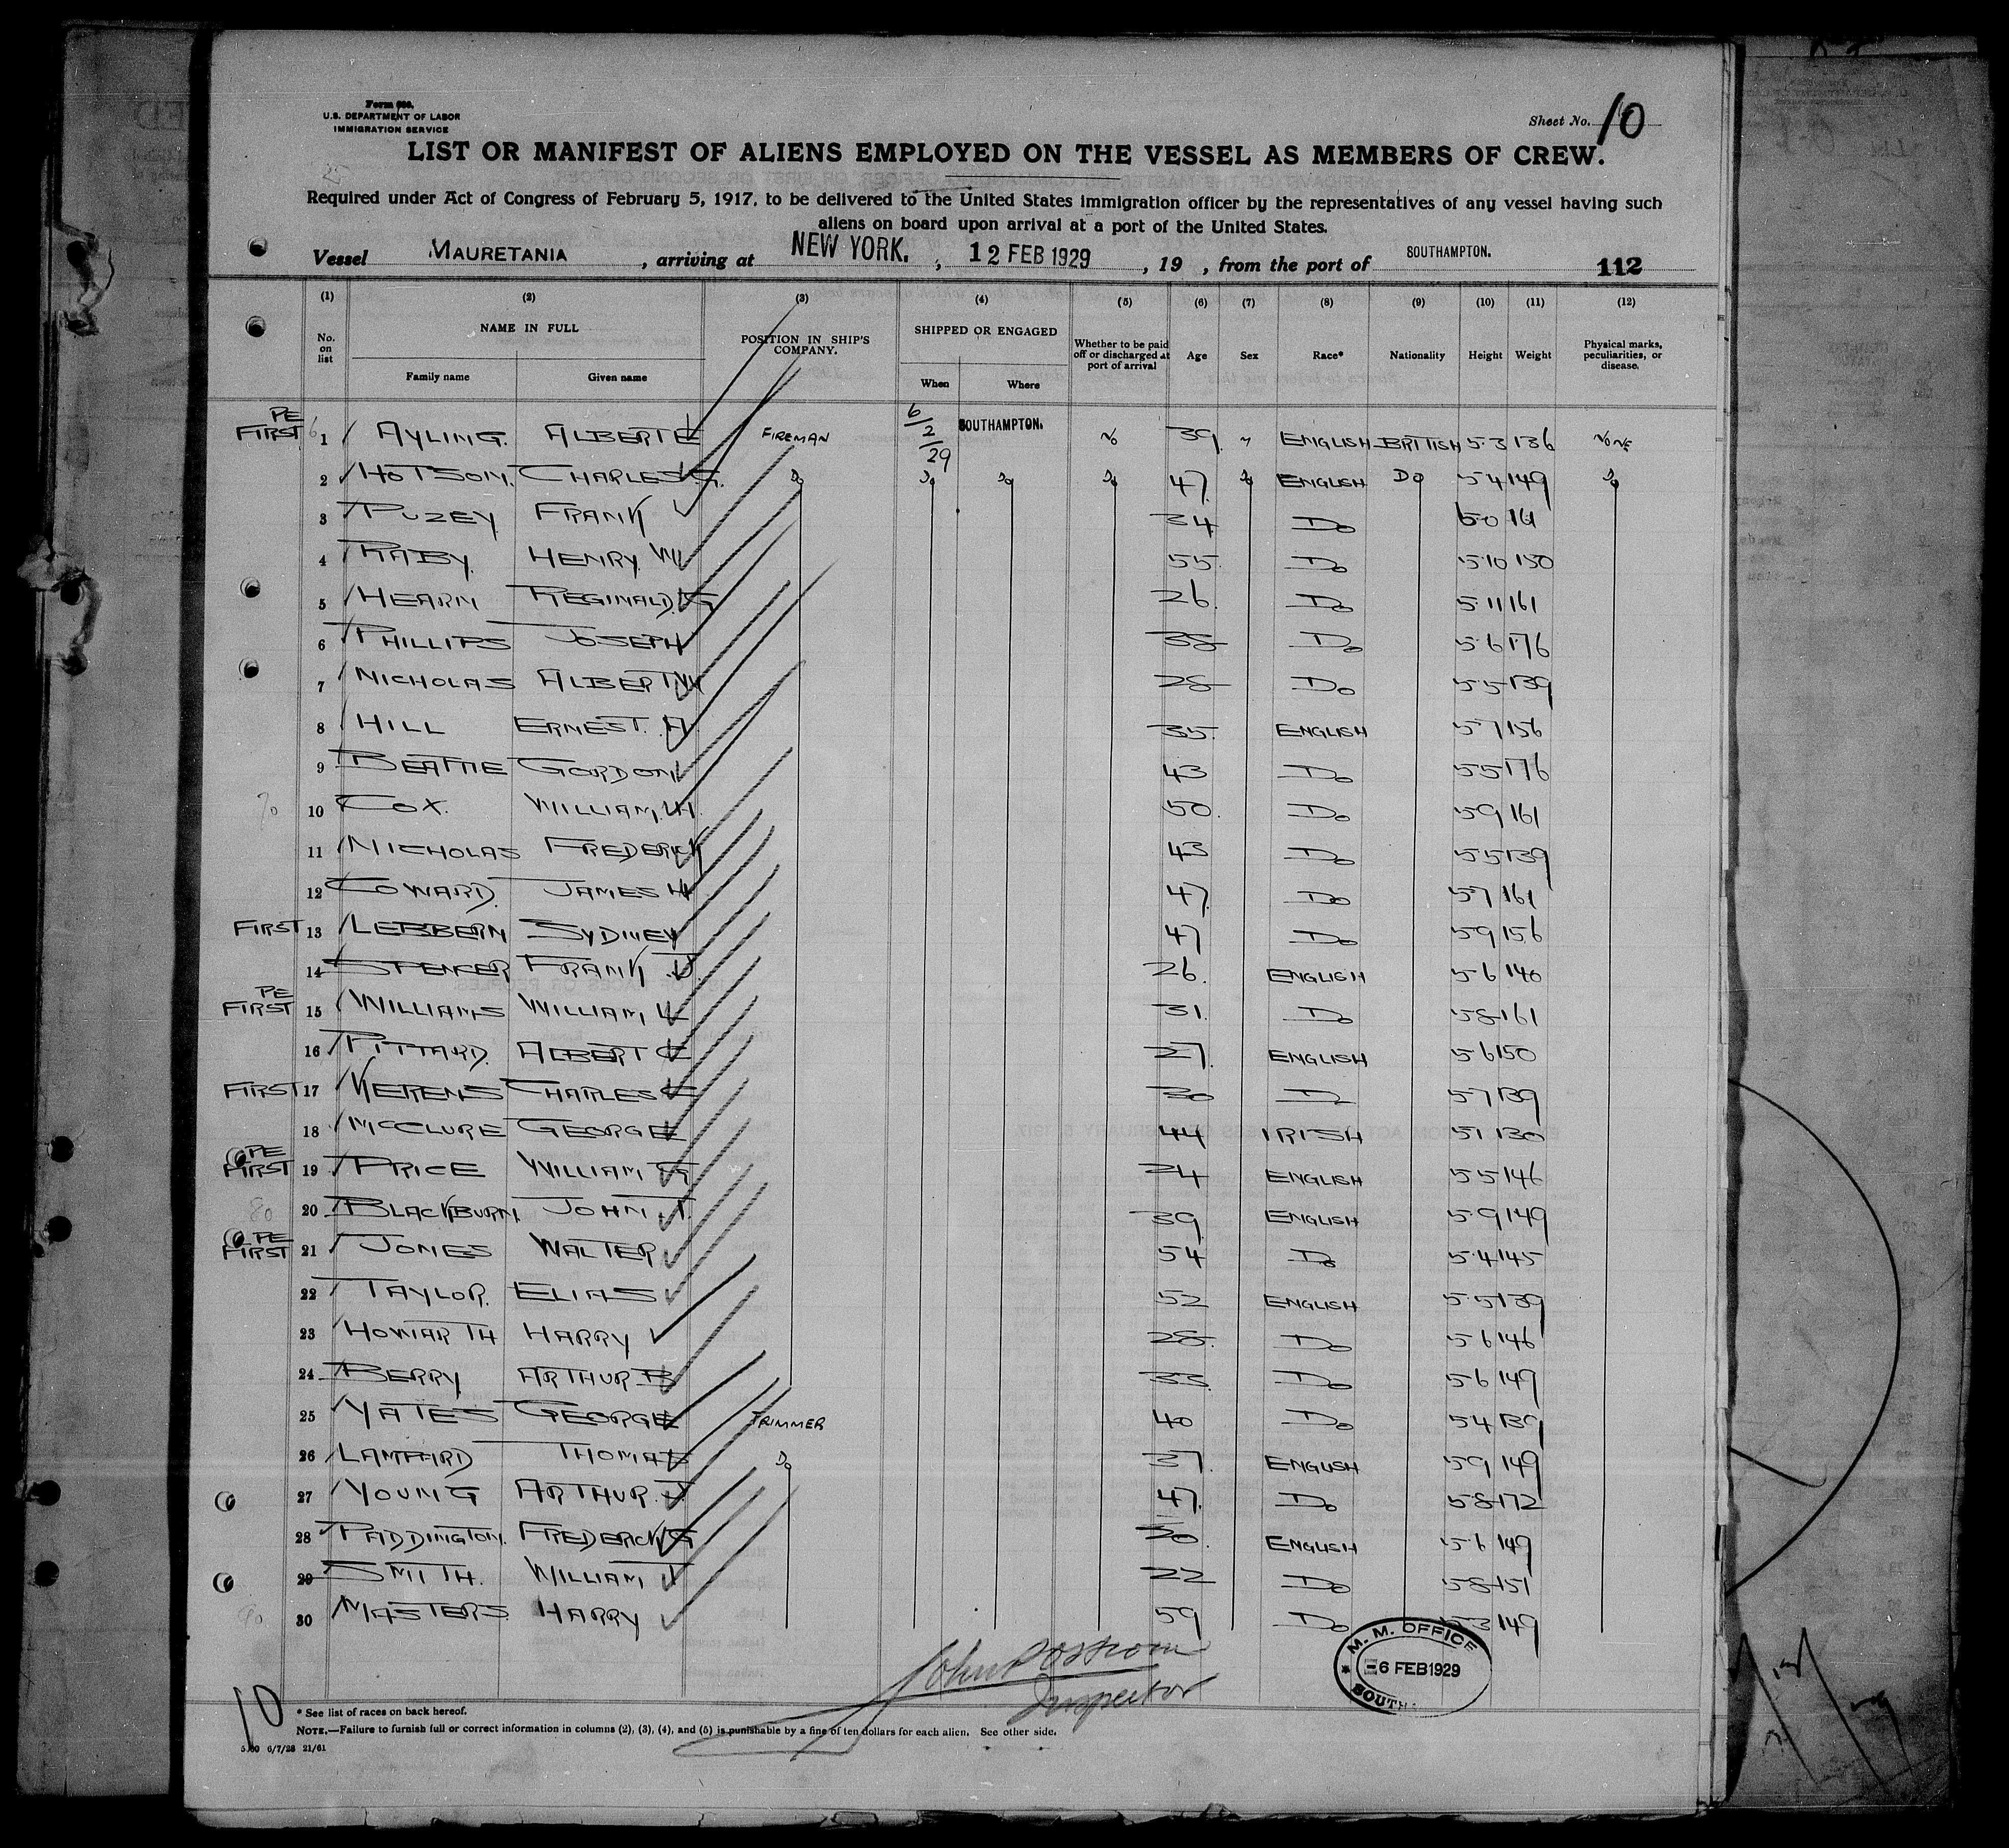 Form 680.
U.S. DEPARTMENT OF LABOR
IMMIGRATION SERVICE
Sheet No. 10
LIST OR MANIFEST OF ALIENS EMPLOYED ON THE VESSEL AS MEMBERS OF CREW.
Required under Act of Congress of February 5, 1917, to be delivered to the United States immigration officer by the representatives of any vessel having such
aliens on board upon arrival at a port of the United States.
Vessel MAURETANIA, arriving at NEW YORK., 12 FEB 1929, 19 , from the port of SOUTHAMPTON. 112
(1) (2) (3) (4) (5) (6) (7) (8) (9) (10) (11) (12)
No. on list NAME IN FULL Family name Given name POSITION IN SHIP'S COMPANY. SHIPPED OR ENGAGED When Where Whether to be paid off or discharged at port of arrival Age Sex Race* Nationality Height Weight Physical marks, peculiarities, or disease.
PE FIRST 1 AYLING. ALBERT E FIREMAN 6/2/29 SOUTHAMPTON. No 39 ENGLISH BRITISH 5-3 136 None
2 HOTSON. CHARLES.G. Do Do Do Do 47 Do ENGLISH DO 5-4 149 Do
3 PUZEY FRANK 34 Do 161
4 RABY. HENRY W 55 Do 5-10 150
5 HEARN REGINALD.G 26 Do 5-11 161
6 PHILLIPS JOSEPH 38 Do 5-6 176
7 NICHOLAS ALBERT W 28 Do 5-5 139
8 HILL ERNEST. A. 35 ENGLISH 5-7 156
9 BEATTIE GORDON 43 Do 5-5 176
10 COX. WILLIAM.H. 50. Do 5-9 161
11 NICHOLAS FREDERICK 43 Do 5-5 139
12 COWARD. JAMES H 47 Do 5-7 161
FIRST 13 LEBBERN SYDNEY 47 Do 5-9 156
14 SPENCER FRANK J. 26. ENGLISH 5-6 140
PE FIRST 15 WILLIAMS WILLIAM 31. Do 5-8 161
16 PITTARD. ALBERT C 27. ENGLISH 5-6 150
FIRST 17 KERENS CHARLES E 30 Do 5-7 139
18 McCLURE GEORGE 44 IRISH 5-1 130
PE FIRST 19 PRICE WILLIAM G 24 ENGLISH 5-5 146
20 BLACKBURN. JOHN.T. 39 ENGLISH 5-9 149
PE FIRST 21 JONES WALTER 54 Do 5-4 145
22 TAYLOR. ELIAS 52 ENGLISH 5-5 139
23 HOWARTH HARRY 28. Do 5-6 146
24 BERRY ARTHUR B 33. Do 5-6 149
25 YATES GEORGE TRIMMER 40 Do 5-4 139
26 LAMPARD THOMAS Do 37. ENGLISH 5-9 149
27 YOUNG ARTHUR.J. 47. Do 5-8 172
28 PADDINGTON. FREDERICK G 30. ENGLISH 5-6 149
29 SMITH. WILLIAM J 22 Do 5-8 151
30 MASTERS. HARRY 59 Do 5-3 149
Inspector
M. M. OFFICE
6 FEB 1929
10
* See list of races on back hereof.
NOTE.—Failure to furnish full or correct information in columns (2), (3), (4), and (5) is punishable by a fine of ten dollars for each alien. See other side.
6/7/28 21/61